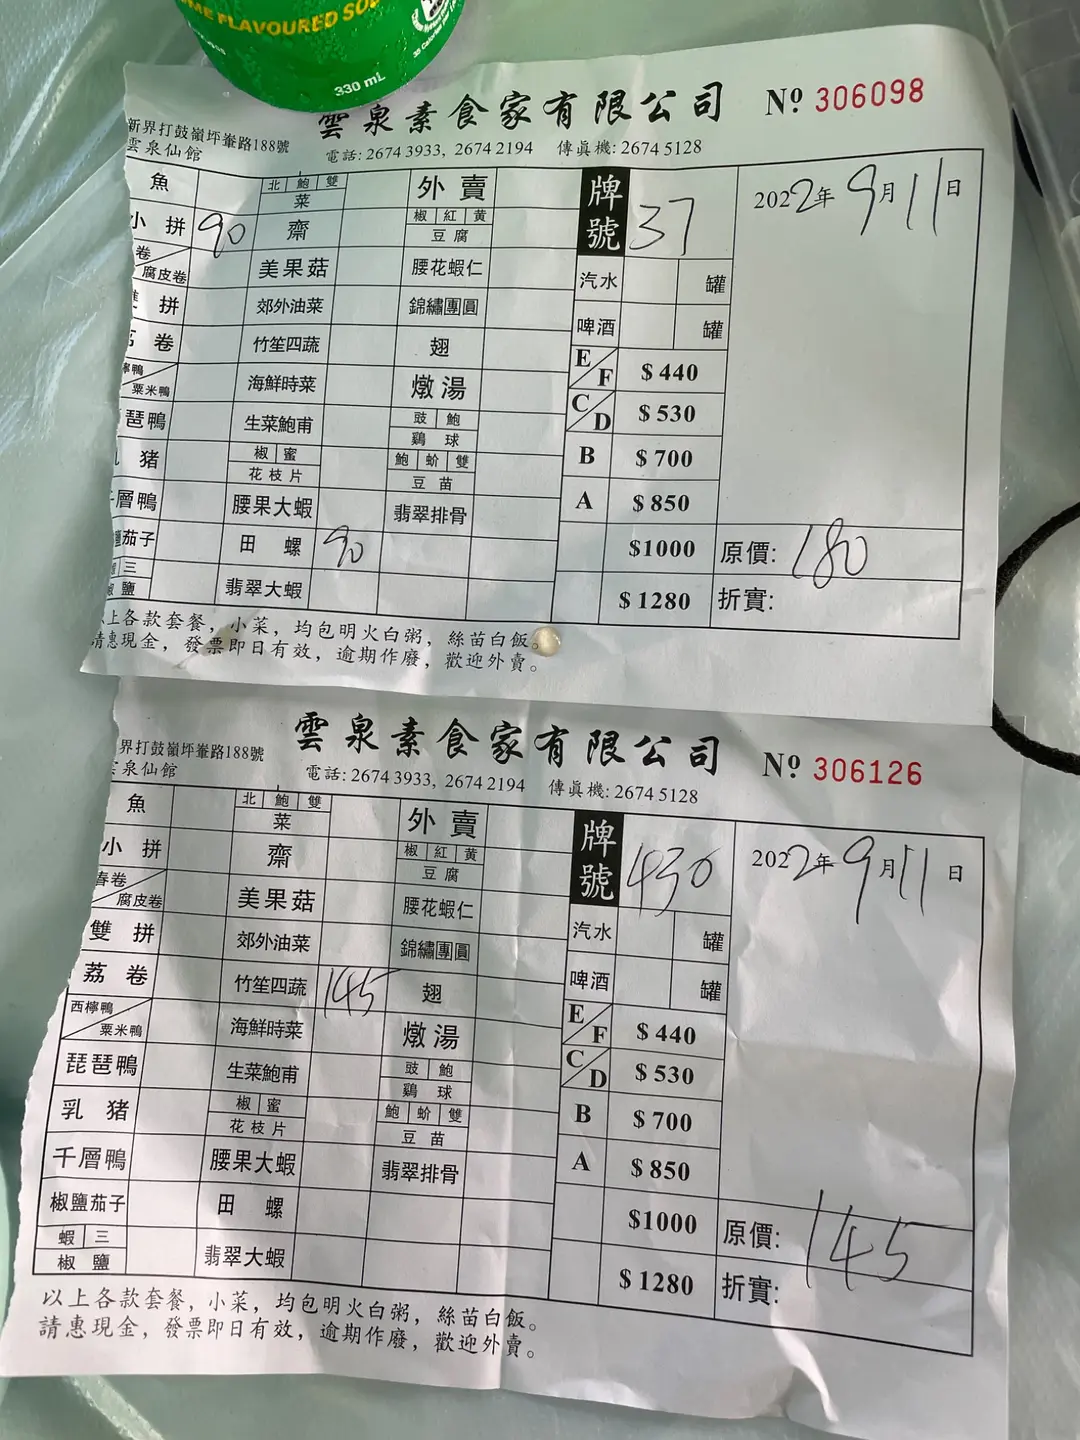 ME FLAVOURED SO
330 mL
雲泉素食家有限公司 Nº 306098
新界打鼓嶺坪輋路188號
雲泉仙館
電話: 2674 3933, 2674 2194 傳眞機: 2674 5128
魚 北 鮑 雙 菜 外賣 牌號 37 2022年9月11日
小拼 90 齋 椒 紅 黄 豆腐
卷 腐皮卷 美果菇 腰花蝦仁 汽水 罐
拼 郊外油菜 錦繡團圓 啤酒 罐
卷 竹笙四蔬 翅 E/F $ 440
粟米鴨 海鮮時菜 燉湯 C/D $ 530
琶鴨 生菜鮑甫 豉 鮑 鷄 球 B $ 700
豬 椒 蜜 花枝片 鮑 蚧 雙 豆苗 A $ 850
層鴨 腰果大蝦 翡翠排骨
茄子 田螺 90 $1000 原價: 180
三 鹽 翡翠大蝦 $ 1280 折實:
上各款套餐, 小菜, 均包明火白粥, 絲苗白飯。
請惠現金, 發票即日有效, 逾期作廢, 歡迎外賣。
雲泉素食家有限公司 Nº 306126
界打鼓嶺坪輋路188號
泉仙館
電話: 2674 3933, 2674 2194 傳眞機: 2674 5128
魚 北 鮑 雙 菜 外賣 牌號 430 2022年9月11日
小拼 齋 椒 紅 黄 豆腐
春卷 腐皮卷 美果菇 腰花蝦仁 汽水 罐
雙拼 郊外油菜 錦繡團圓 啤酒 罐
荔卷 竹笙四蔬 145 翅 E/F $ 440
西檸鴨 粟米鴨 海鮮時菜 燉湯 C/D $ 530
琵琶鴨 生菜鮑甫 豉 鮑 鷄 球 B $ 700
乳豬 椒 蜜 花枝片 鮑 蚧 雙 豆苗 A $ 850
千層鴨 腰果大蝦 翡翠排骨
椒鹽茄子 田螺 $1000 原價: 145
蝦 三 椒 鹽 翡翠大蝦 $ 1280 折實:
以上各款套餐, 小菜, 均包明火白粥, 絲苗白飯。
請惠現金, 發票即日有效, 逾期作廢, 歡迎外賣。